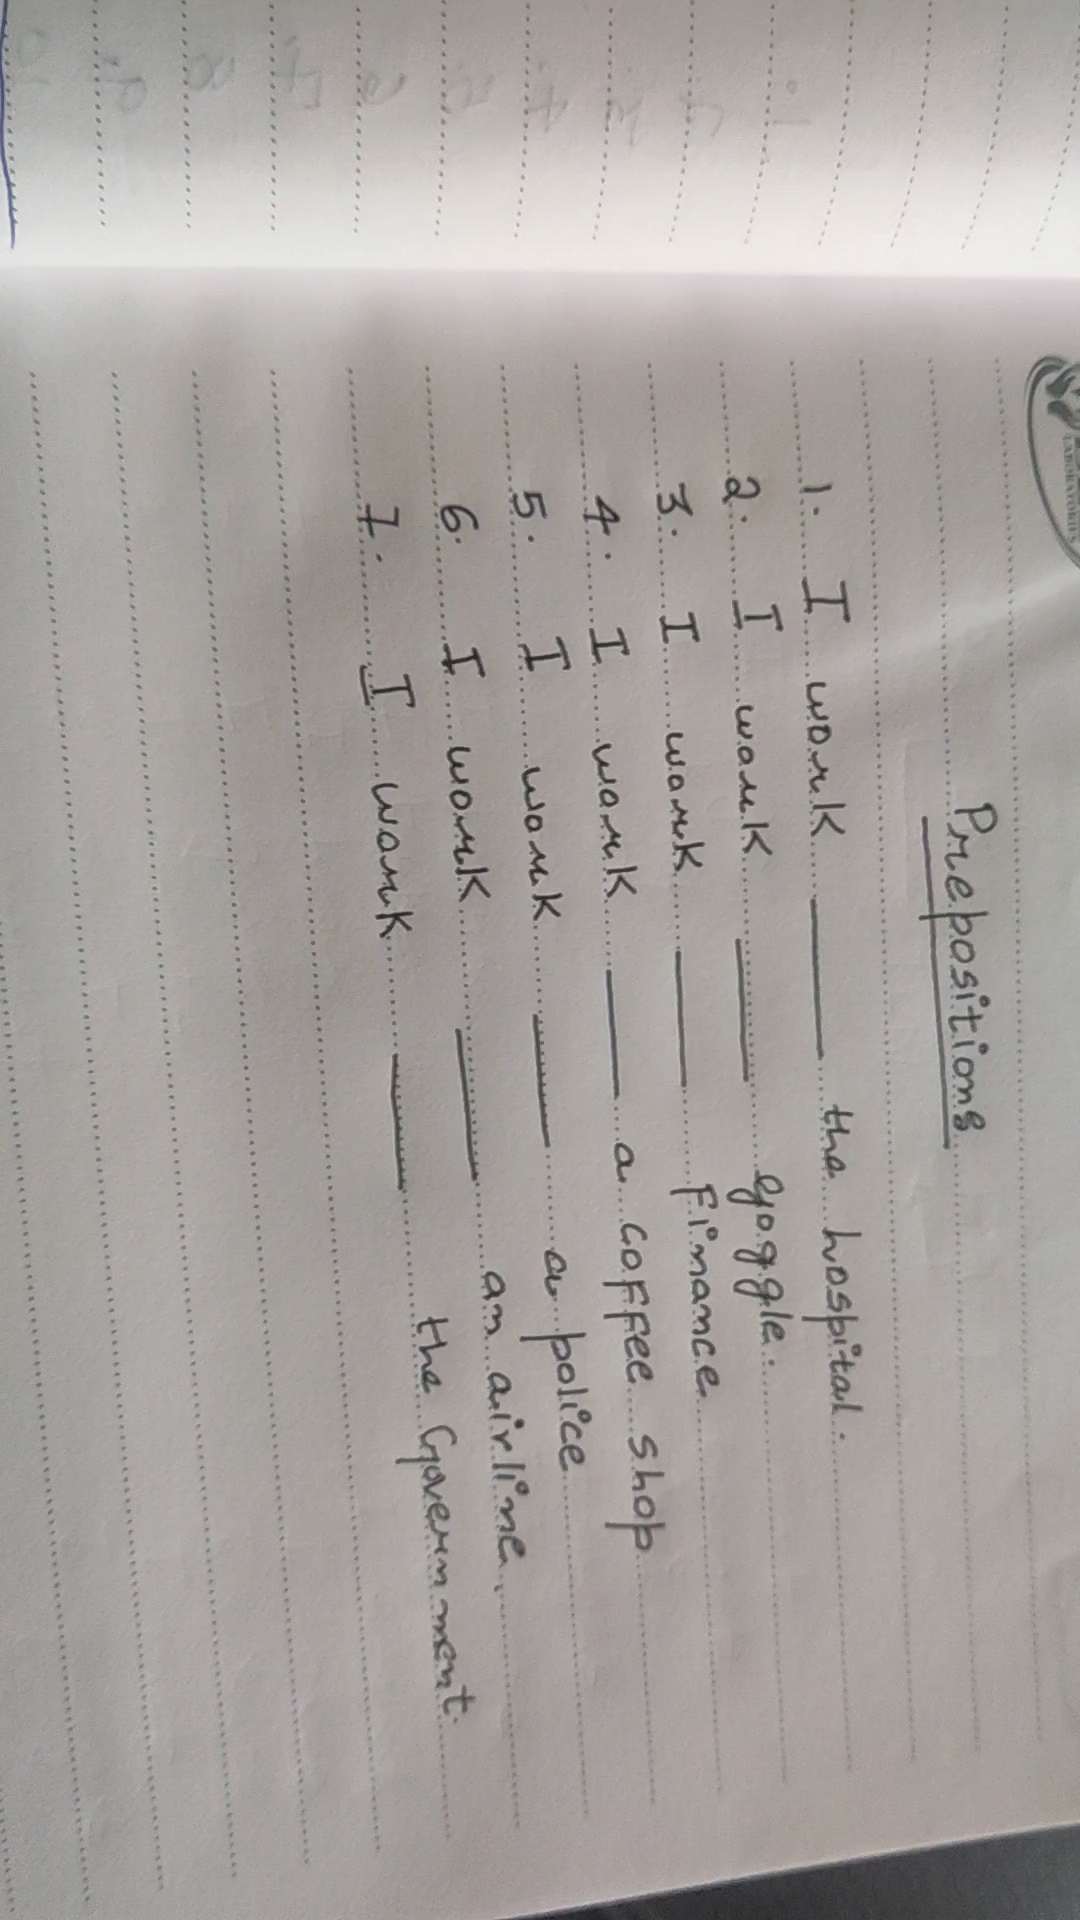 LABORATORIES
Prepositions
1. I work ___ the hospital.
2. I work ___ goggle.
3. I work ___ Finance
4. I work ___ a coffee shop
5. I work ___ a police
6. I work ___ an airline
7. I work ___ the Government.